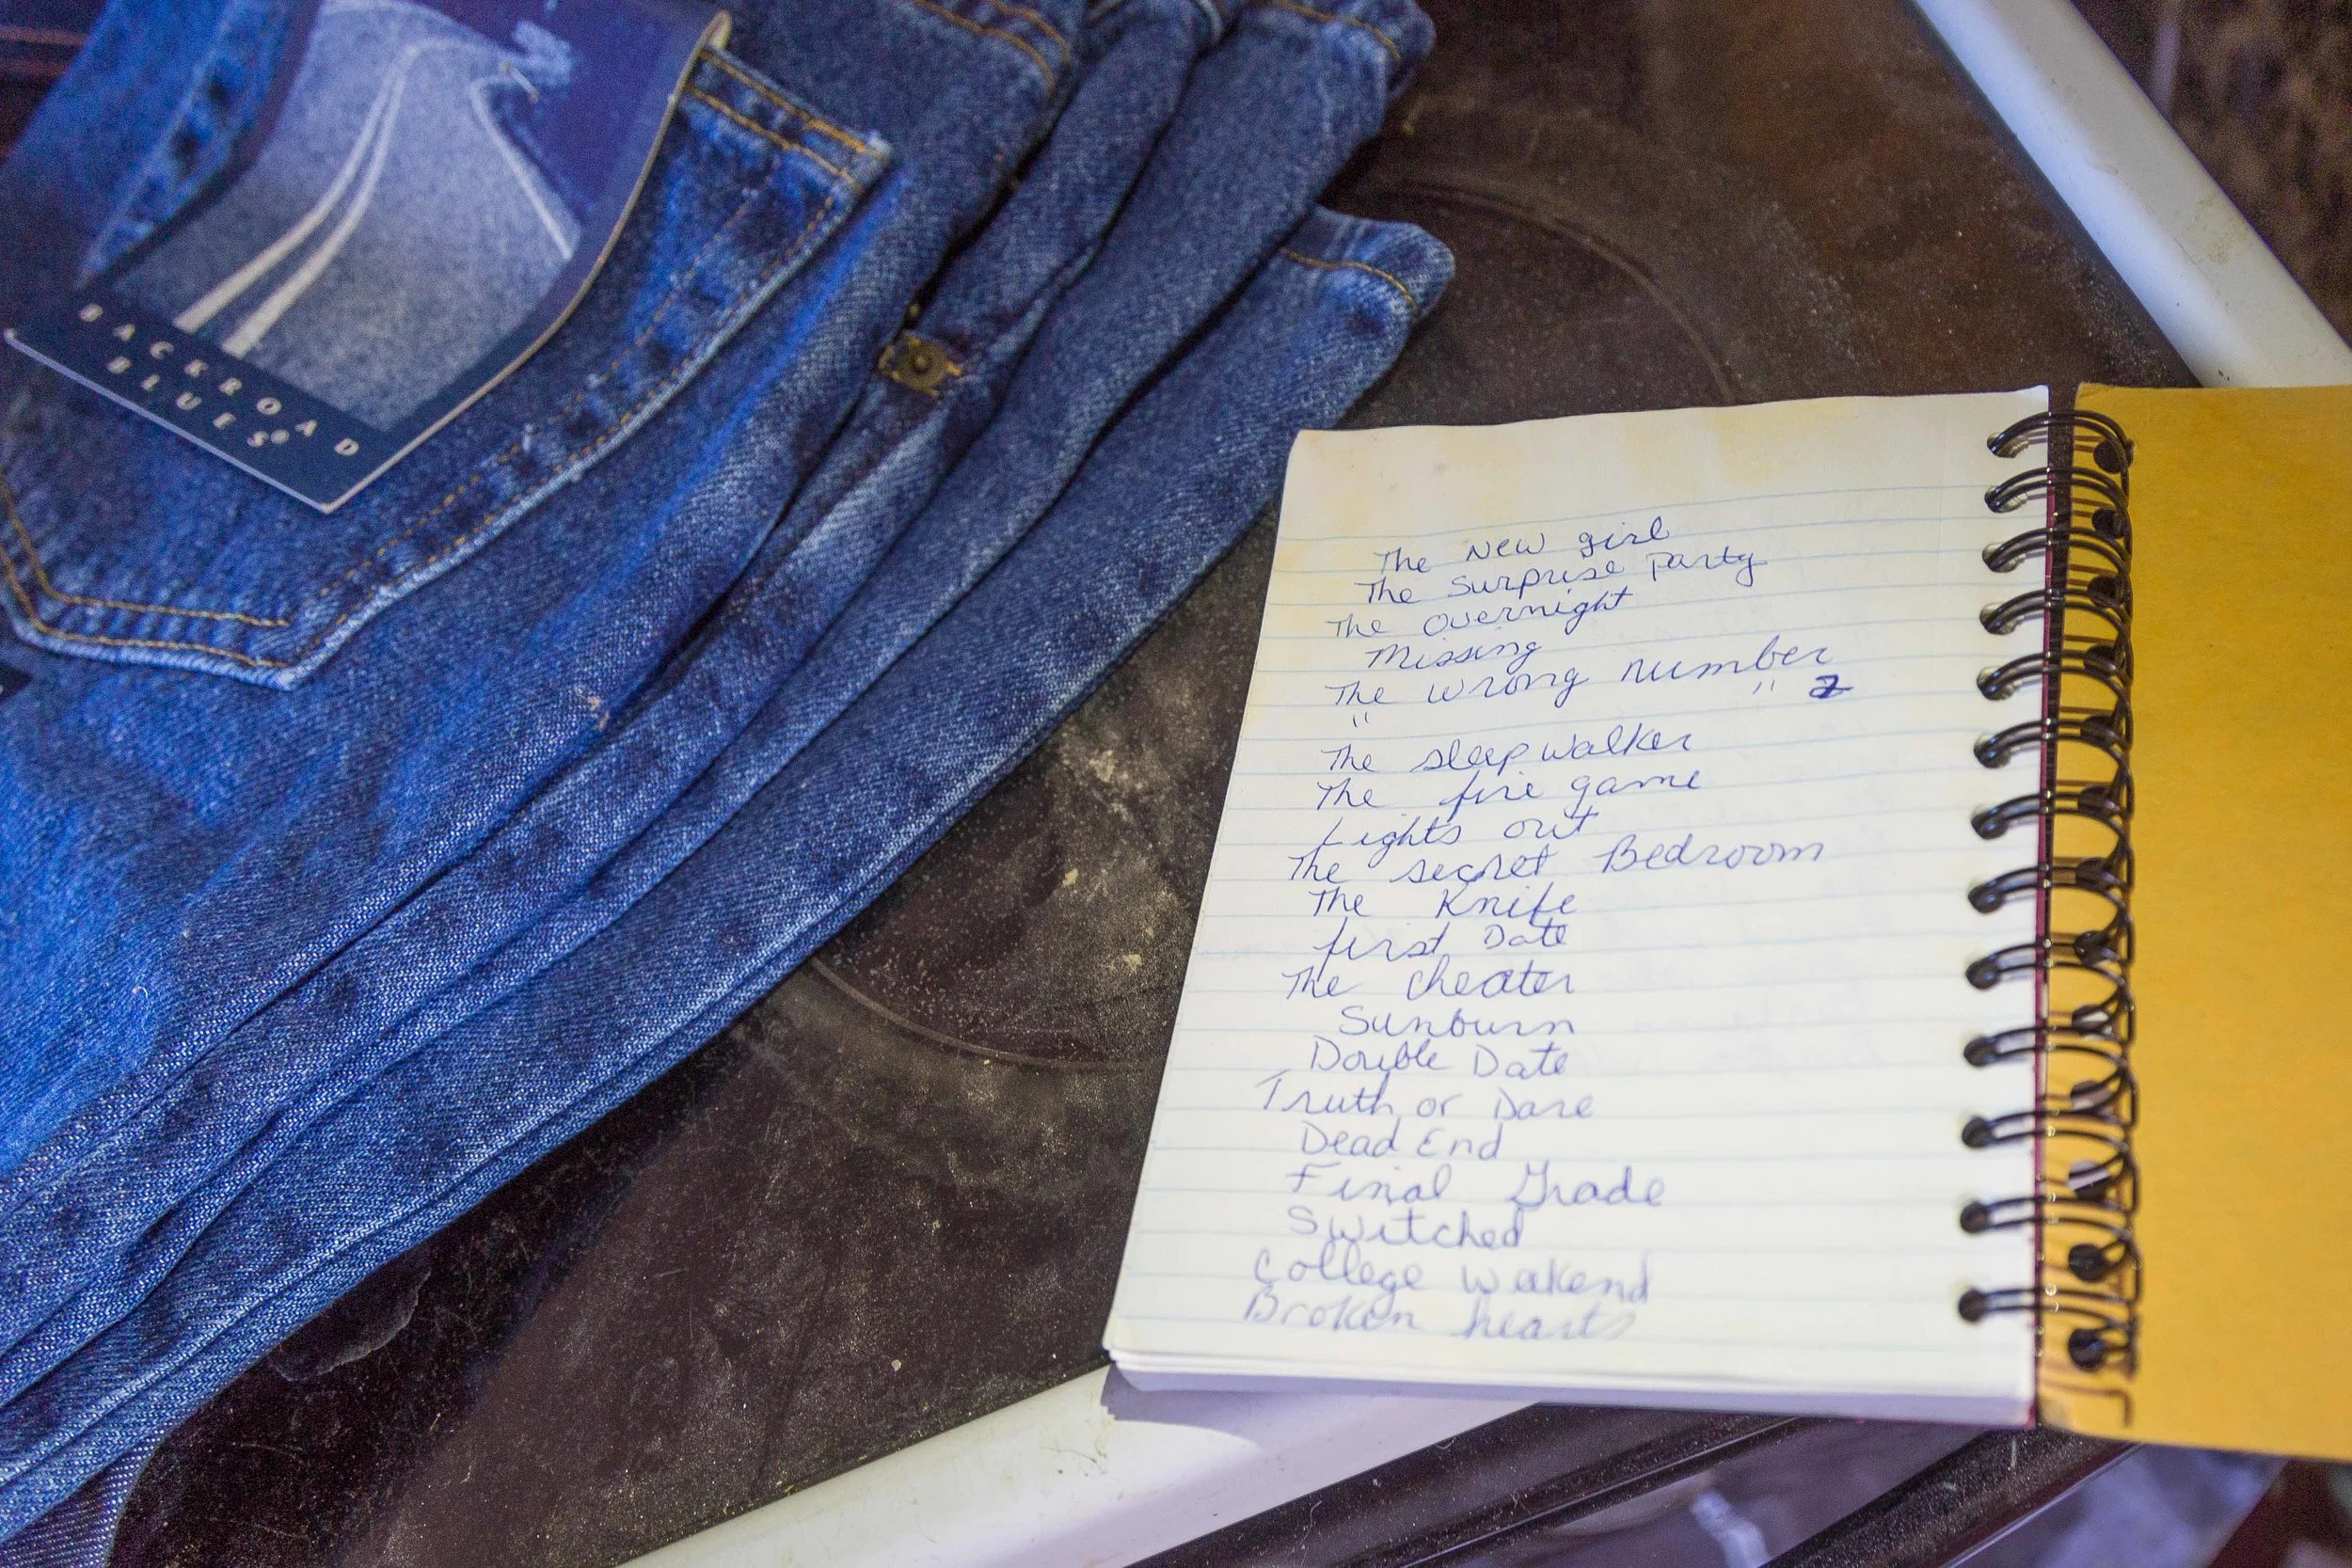 BACKROAD
BLUES®
The New girl
The Surprise Party
The overnight
Missing
The wrong number
" " 2
The sleepwalker
The fire game
Lights out
The secret Bedroom
The Knife
first Date
The cheater
Sunburn
Double Date
Truth or Dare
Dead End
Final Grade
Switched
College Wekend
Broken hearts